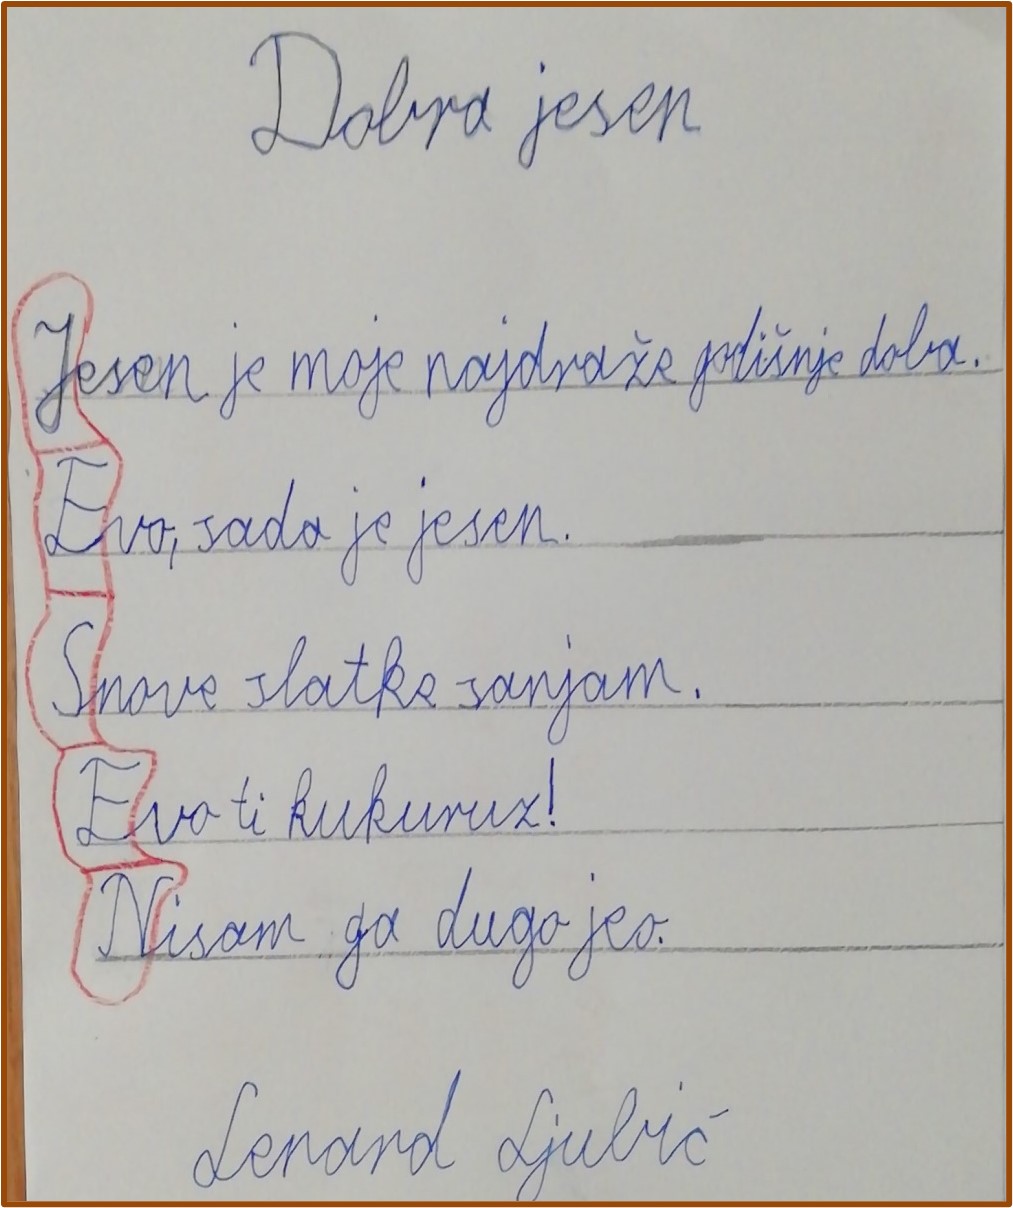 Dobra jesen
Jesen je moje najdraže godišnje doba.
Evo, sada je jesen.
Snove slatke sanjam.
Evo ti kukuruz!
Nisam ga dugo jeo.
Lenard Ljubić